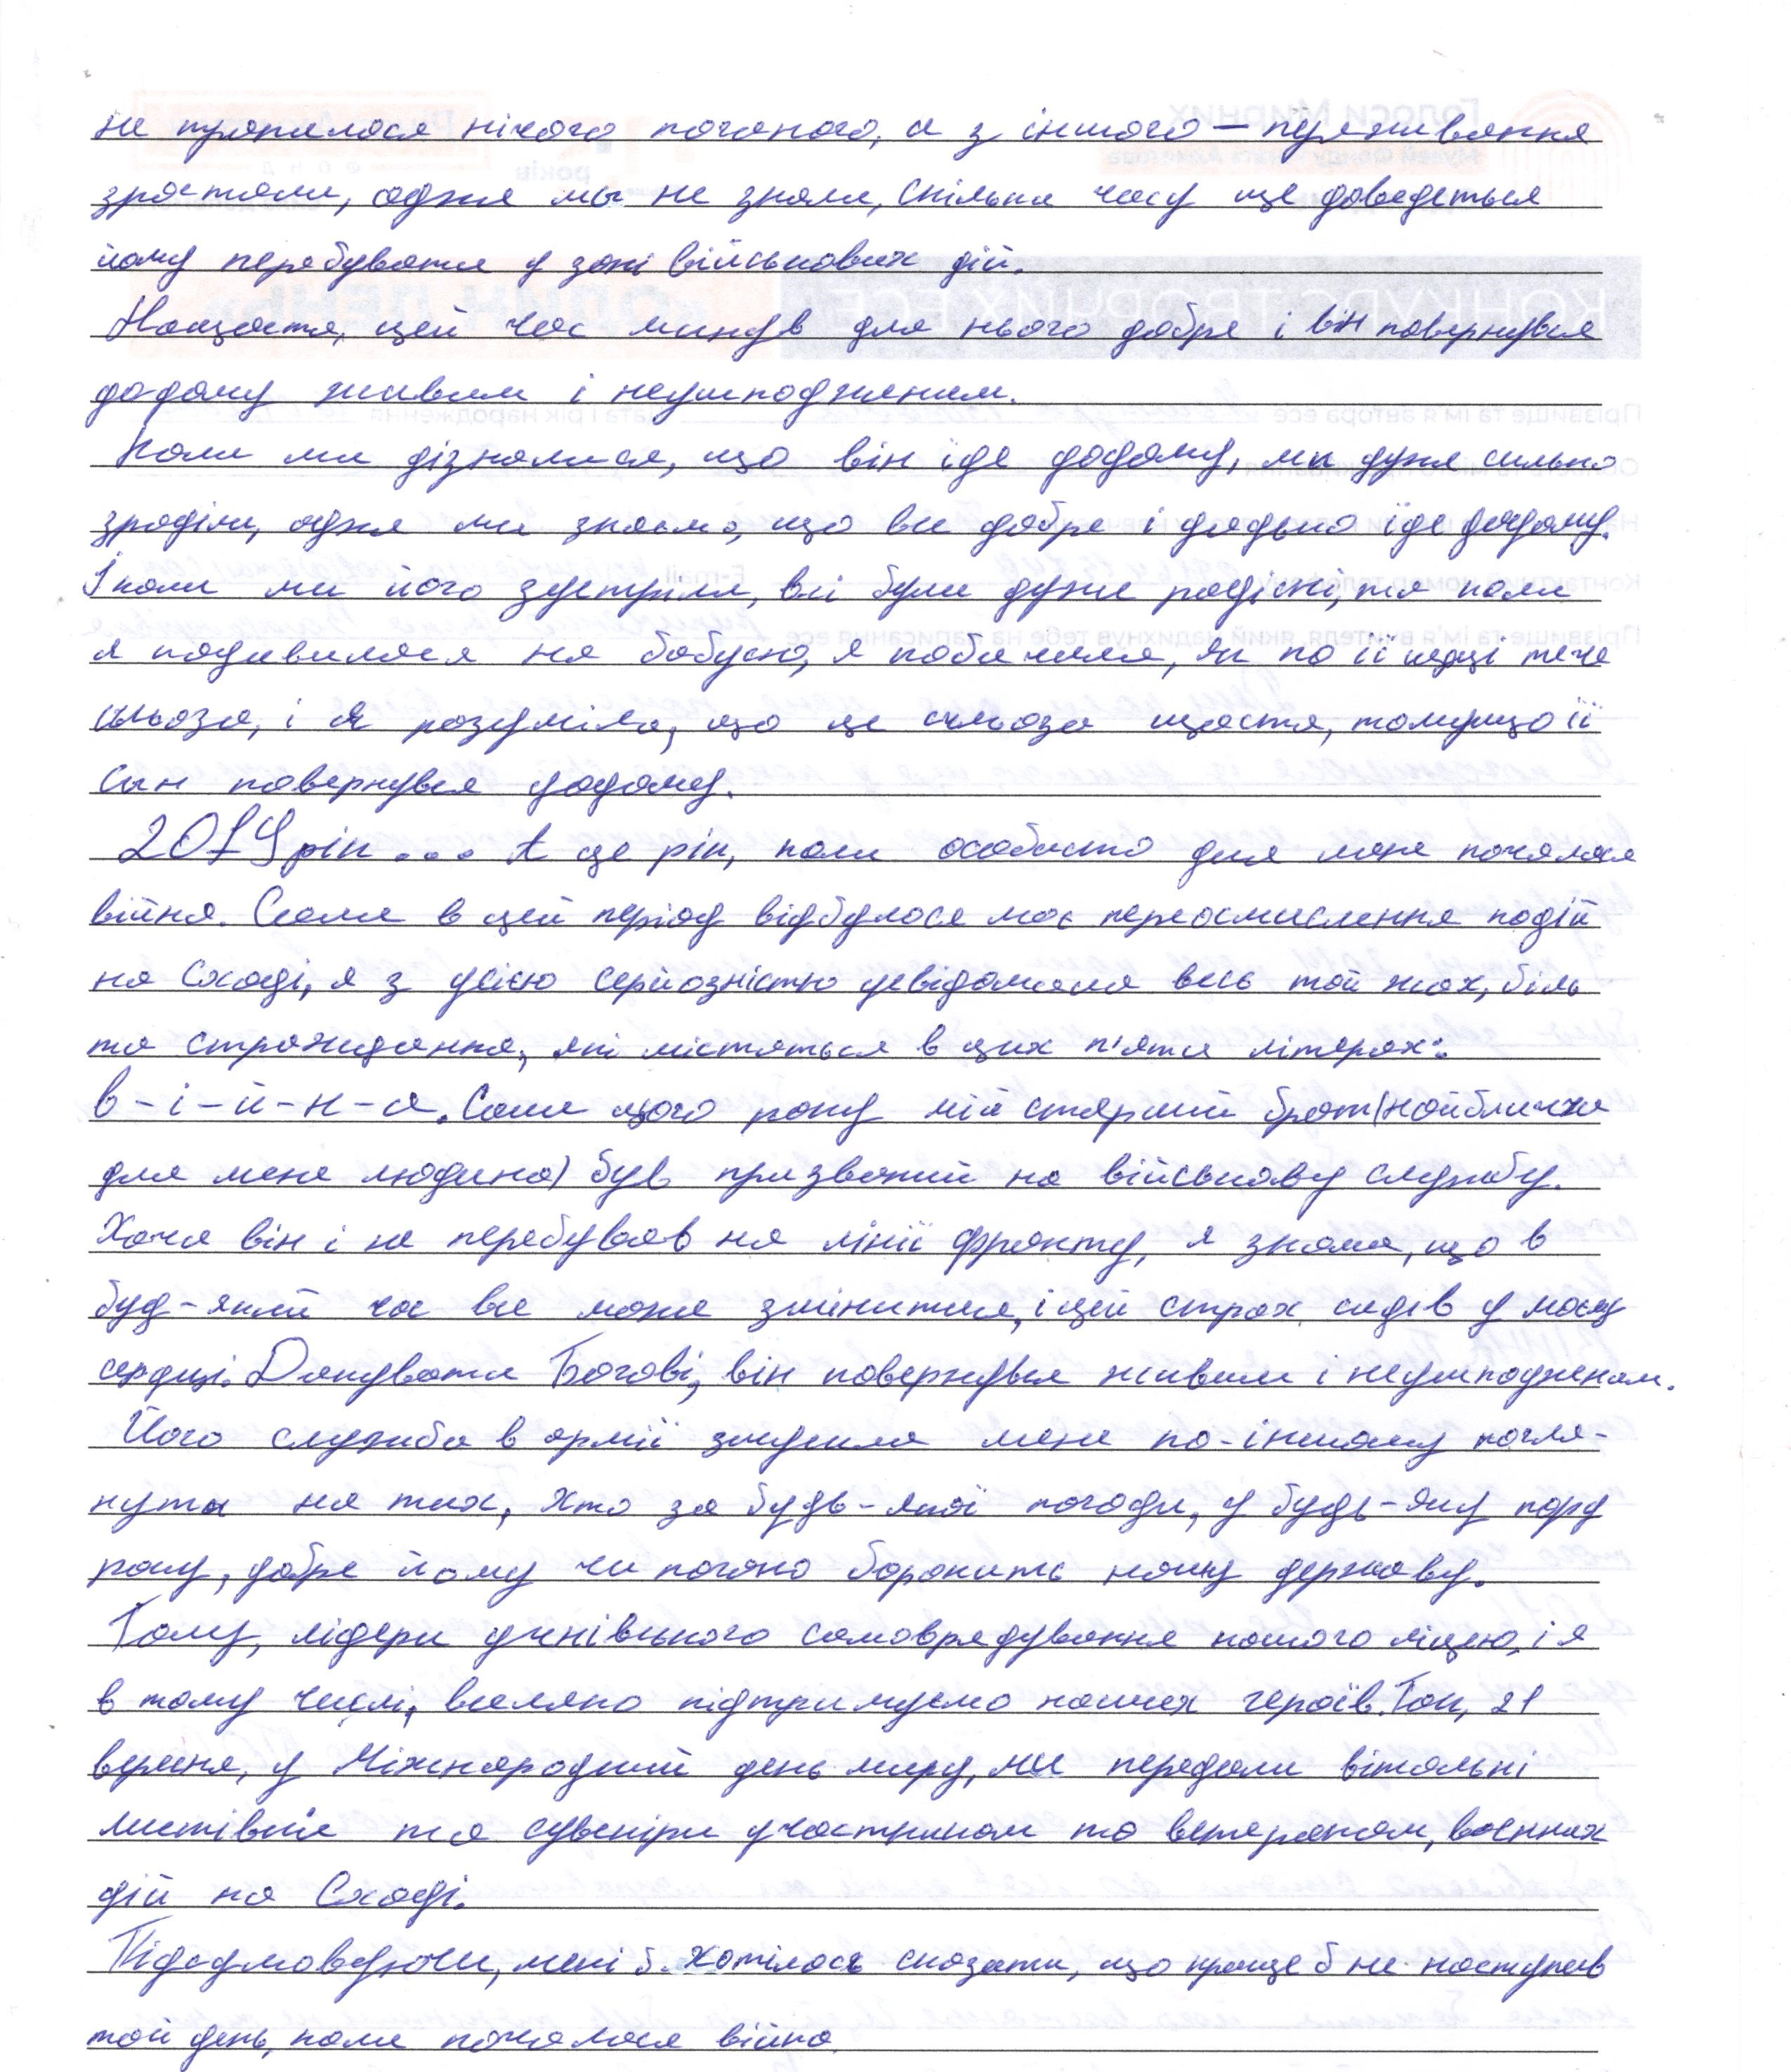 не трапилося нічого поганого, а з іншого — переживання
зростали, адже ми не знали, скільки часу ще доведеться
йому перебувати у зоні військових дій.
Нащастя, цей час минув для нього добре і він повернувся
додому живим і неушкодженим.
Коли ми дізналися, що він їде додому, ми дуже сильно
зраділи, адже ми знаємо, що все добре і дядько їде додому.
І коли ми його зустріли, всі були дуже радісні, та коли
я подивилася на бабусю, я побачила, як по її щоці тече
сльоза, і я розуміла, що це сльоза щастя, томущо її
син повернувся додому.
2019 рік... А це рік, коли особисто для мене почалася
війна. Саме в цей період відбулося моє переосмислення подій
на Сході, я з усією серйозністю усвідомила весь той жах, біль
та страждання, які містяться в цих п'яти літерах:
в-і-й-н-а. Саме цього року мій старший брат (найближча
для мене людина) був призваний на військову службу.
Хоча він і не перебував на лінії фронту, я знала, що в
будь-який час все може змінитися, і цей страх сидів у моєму
серці. Дякувати Богові, він повернувся живим і неушкодженим.
Його служба в армії змусила мене по-іншому погля-
нути на тих, хто за будь-якої погоди, у будь-яку пору
року, добре йому чи погано боронить нашу державу.
Тому, лідери учнівського самоврядування нашого ліцею, і я
в тому числі, вселяко підтримуємо наших героїв. Так, 21
вересня, у Міжнародний день миру, ми передали вітальні
листівки та сувеніри учасникам та ветеранам, воєнних
дій на Сході.
Підсумовуючи, мені б хотілося сказати, що краще б не наступив
той день, коли почалася війна.